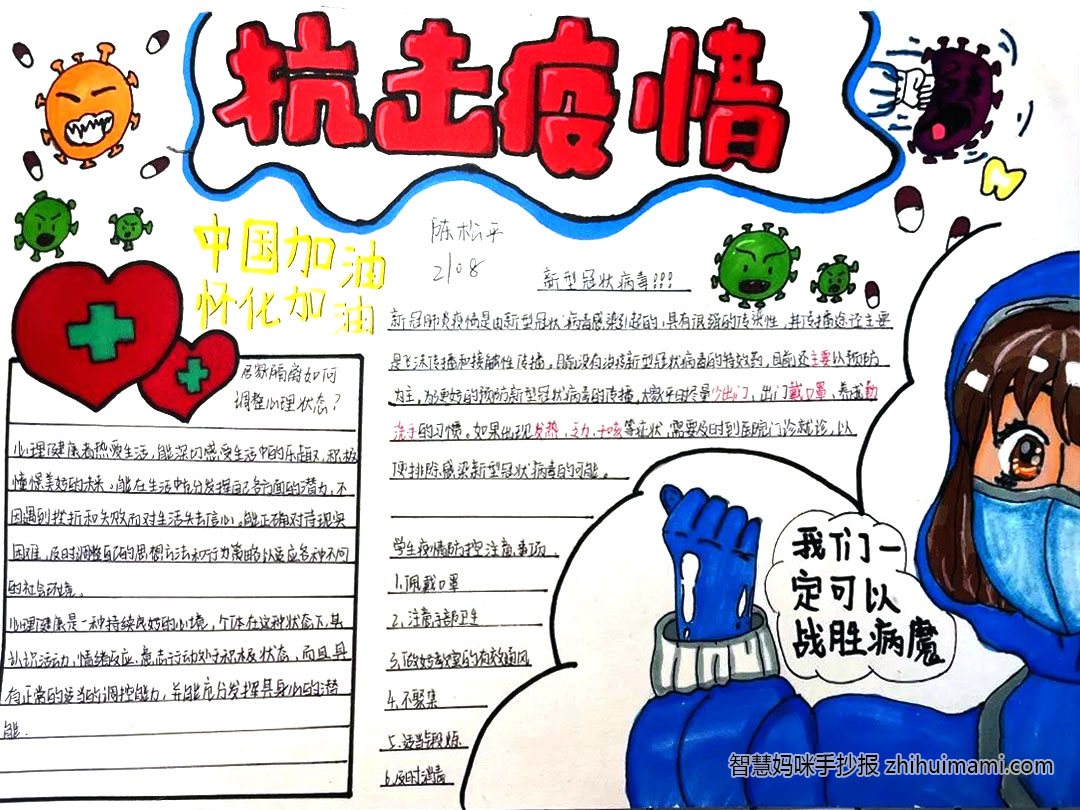 抗击疫情
中国加油
怀化加油
陈松平
2108
新型冠状病毒!!!
新冠肺炎疫情是由新型冠状病毒感染引起的,具有很强的传染性,其传播途径主要
是飞沫传播和接触性传播,目前没有治疗新型冠状病毒的特效药,目前还主要以预防
为主,为了更好的预防新型冠状病毒的传播,大家平时尽量少出门,出门戴口罩,养成勤
洗手的习惯。如果出现发热,乏力,干咳等症状,需要及时到医院门诊就诊,以
便排除感染新型冠状病毒的可能。
学生疫情防控注意事项。
1.佩戴口罩
2.注意手部卫生
3.做好教室的有效通风
4.不聚集
5.适当锻炼
6.及时消毒
居家隔离如何
调整心理状态?
心理健康者热爱生活,能深切感受生活中的乐趣,积极
憧憬美好的未来。能在生活中充分发挥自己各方面的潜力,不
因遇到挫折和失败而对生活失去信心。能正确对待现实
困难,及时调整自己的思想方法和行为策略以适应各种不同
的社会环境。
心理健康是一种持续良好的心境,个体在这种状态下,其
认识活动,情绪反应,意志行动处于积极状态,而且具
有正常的适当的调控能力,并能充分发挥其身心的潜
能.
我们一
定可以
战胜病魔
智慧妈咪手抄报 zhihuimami.com